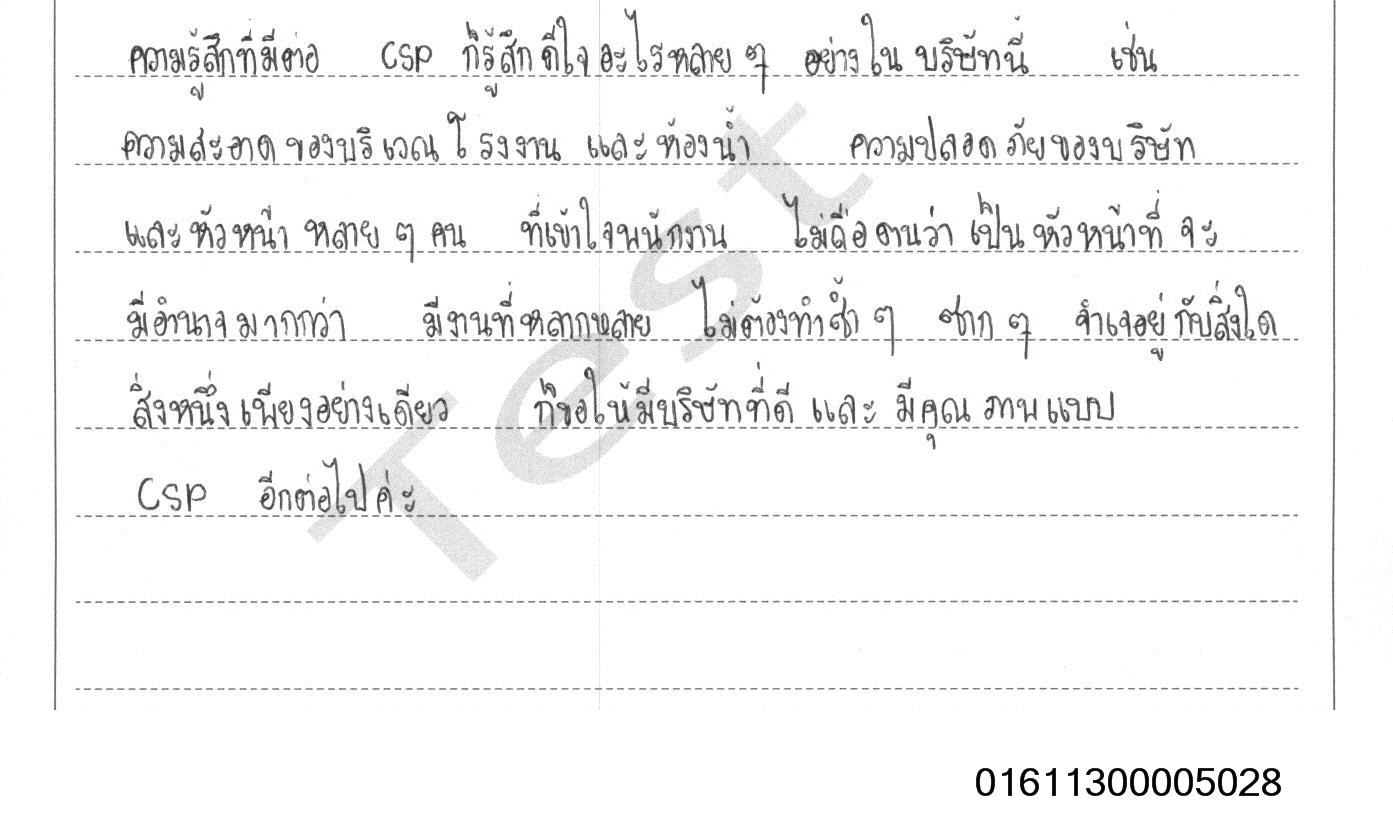 ความรู้สึกที่มีต่อ CSP ก็รู้สึกดีใจอะไรหลายๆ อย่างในบริษัทนี้ เช่น
ความสะอาดของบริเวณโรงงาน และห้องน้ำ ความปลอดภัยของบริษัท
และหัวหน้าหลายๆคน ที่เข้าใจพนักงาน ไม่ถือตนว่าเป็นหัวหน้าที่จะ
มีอำนาจมากกว่า มีงานที่หลากหลาย ไม่ต้องทำซ้ำๆ ซากๆ จำเจอยู่กับสิ่งใด
สิ่งหนึ่งเพียงอย่างเดียว ก็ขอให้มีบริษัทที่ดี และ มีคุณภาพแบบ
CSP อีกต่อไปค่ะ
Test
01611300005028